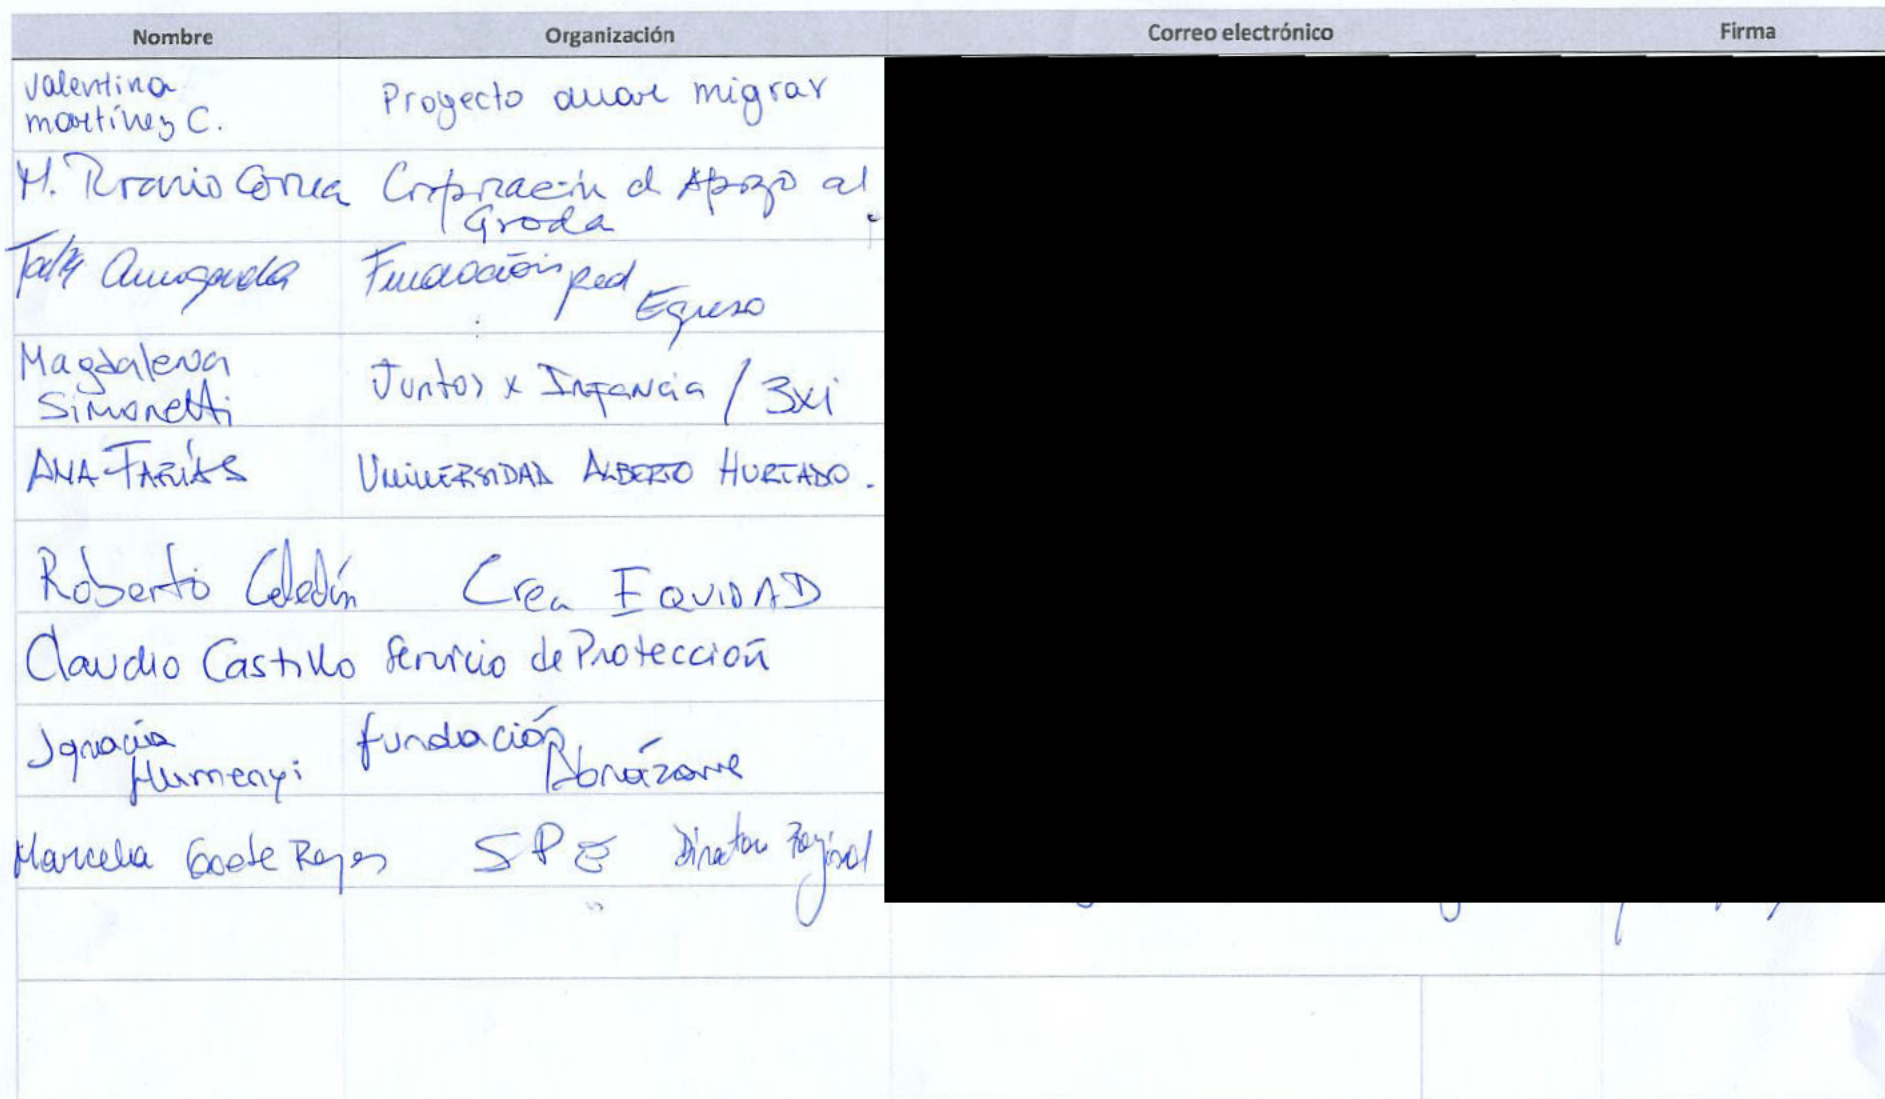 Nombre Organización Correo electrónico Firma
Valentina
martínez C. Proyecto migrar
M. Correa Corporación d Apoyo al
Groda
Fundación Red
Egreso
Magdalena
Simonetti Juntos x Infancia / 3xi
ANA FARÍAS UNIVERSIDAD ALBERTO HURTADO.
Roberto Celedón Crea EQUIDAD
Claudio Castillo Servicio de Protección
Ignacia
Humenyi fundación
Abrázame
Marcela Goete Reyes SPE Director Regional